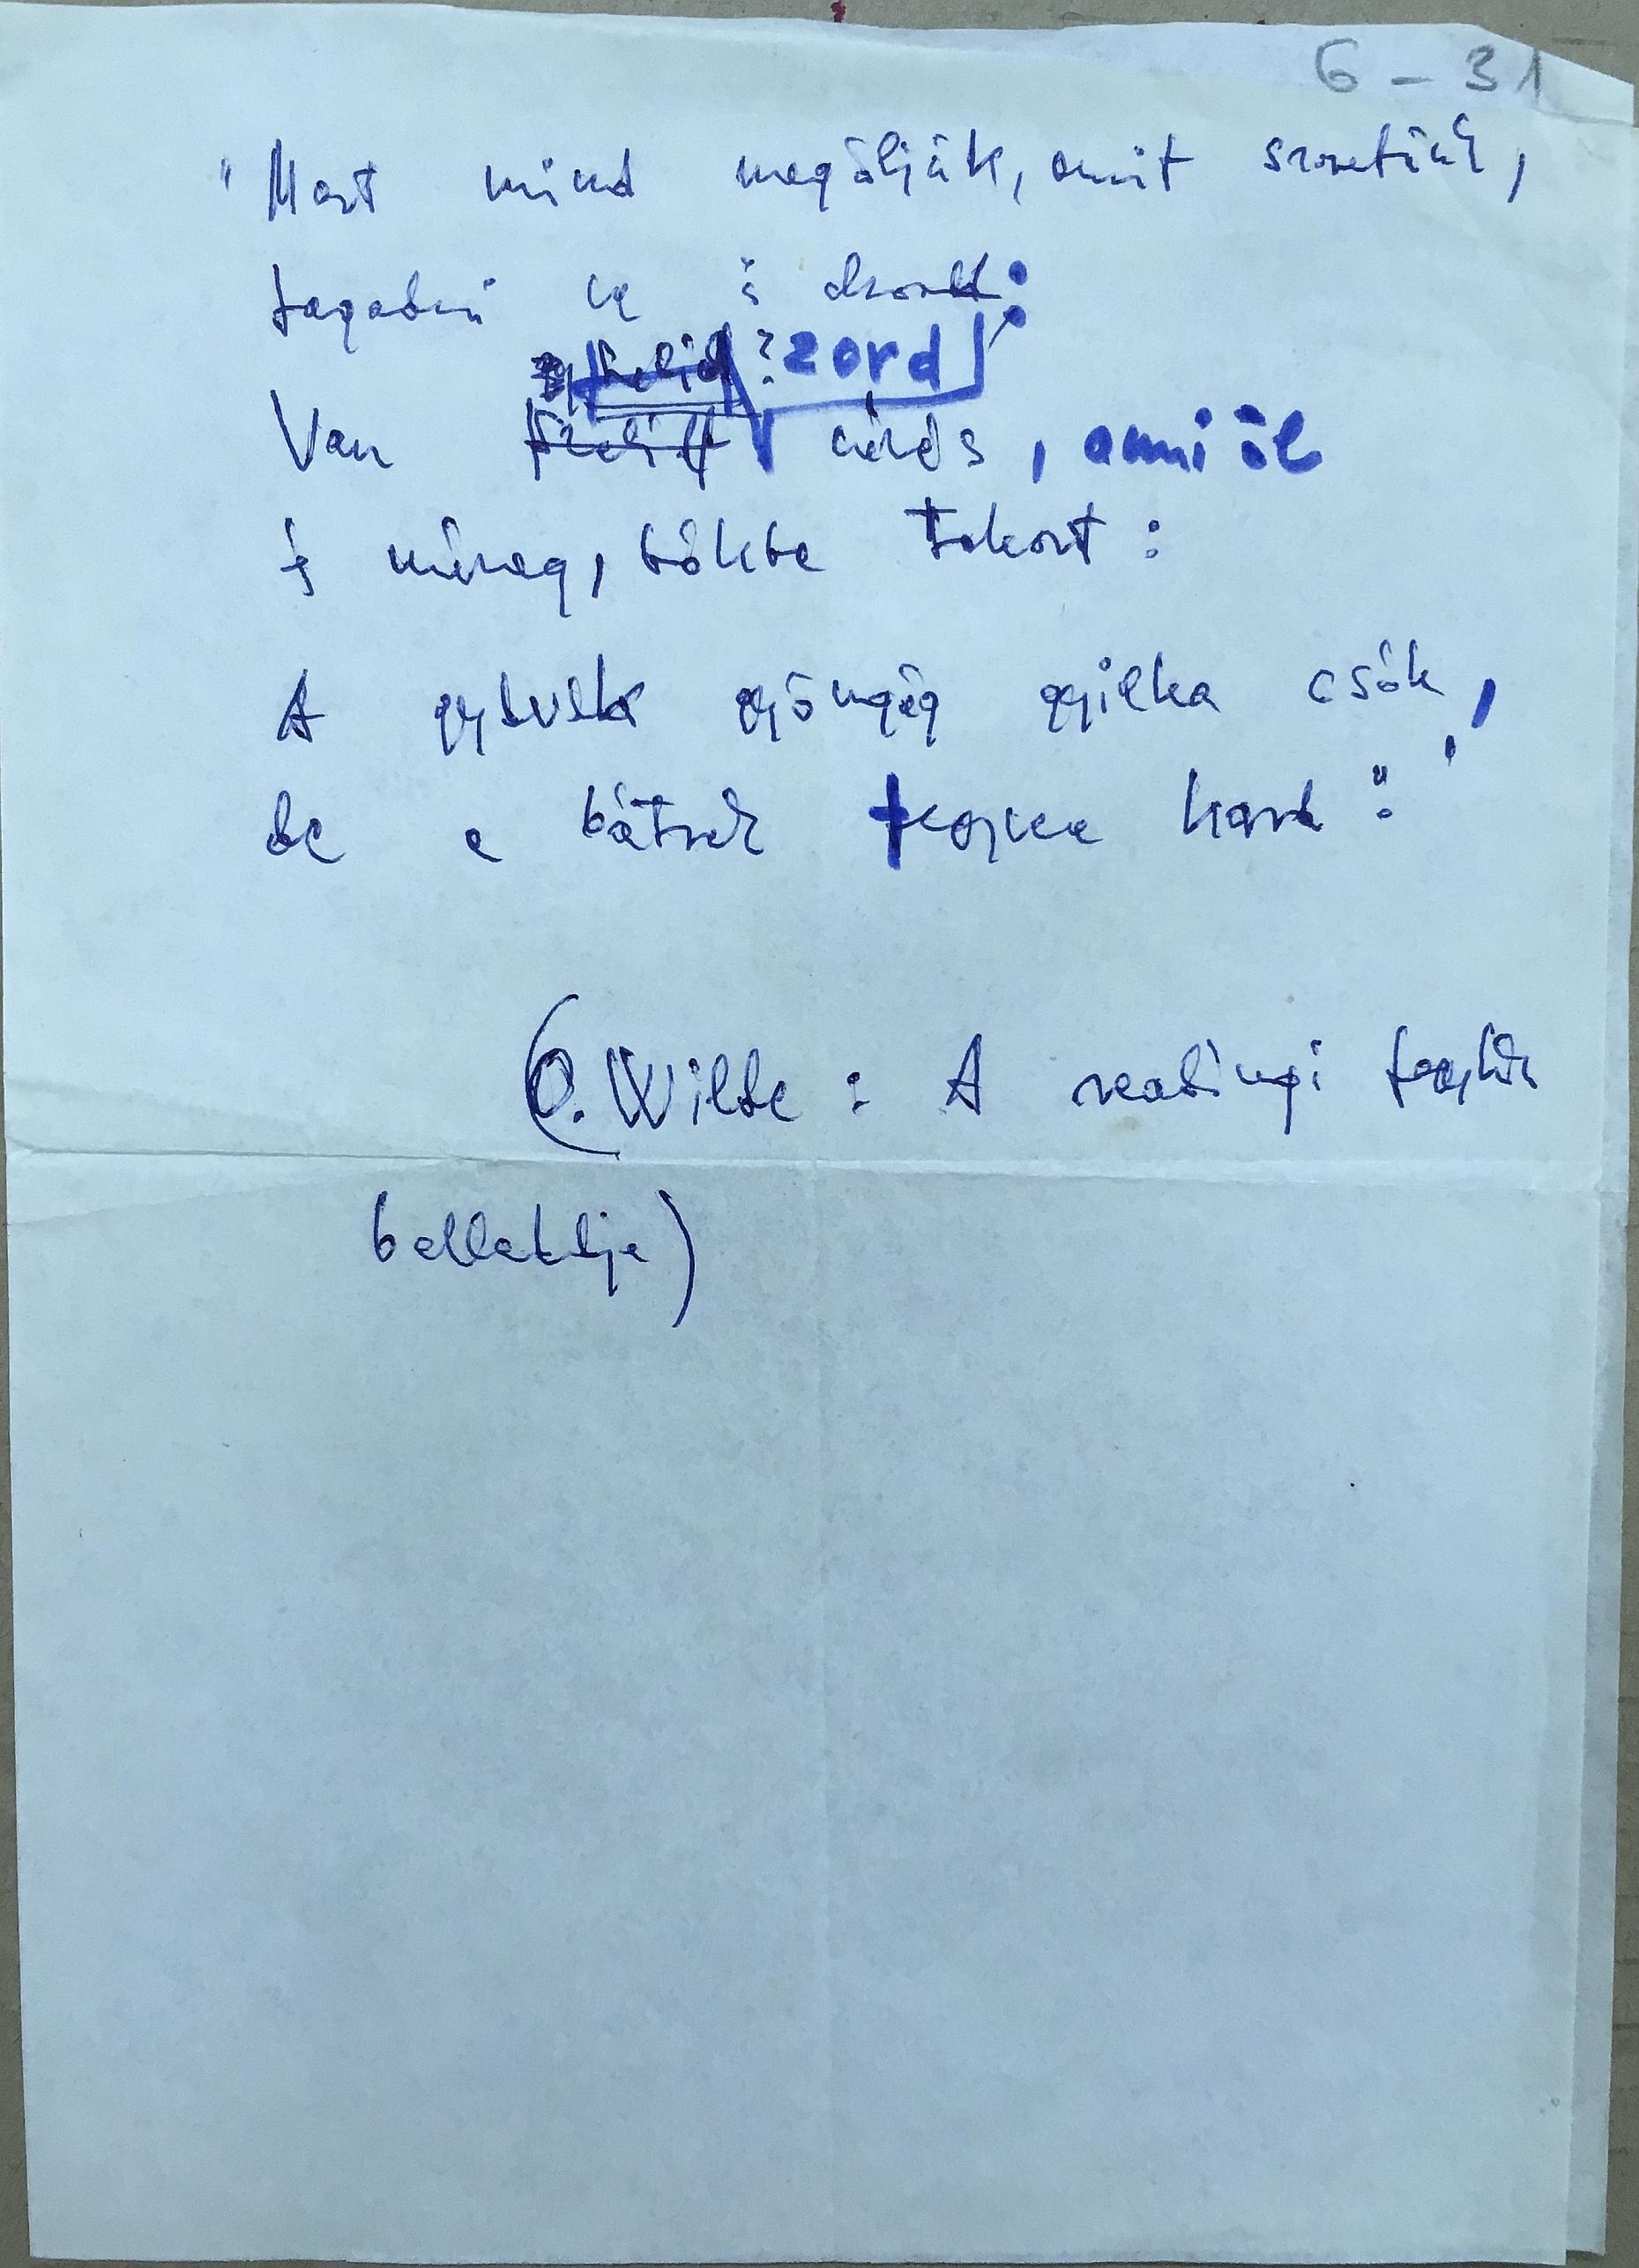 6 - 31
"Mert mind megöljük, amit szeretünk,
tagadni
zord
Van nézés, ami öl
s méreg, bókba takart:
A gyávák gyöngéd gyilka csók,
de a bátrak fegyvere kard".
(O. Wilde: A readingi fegyház
balladája)